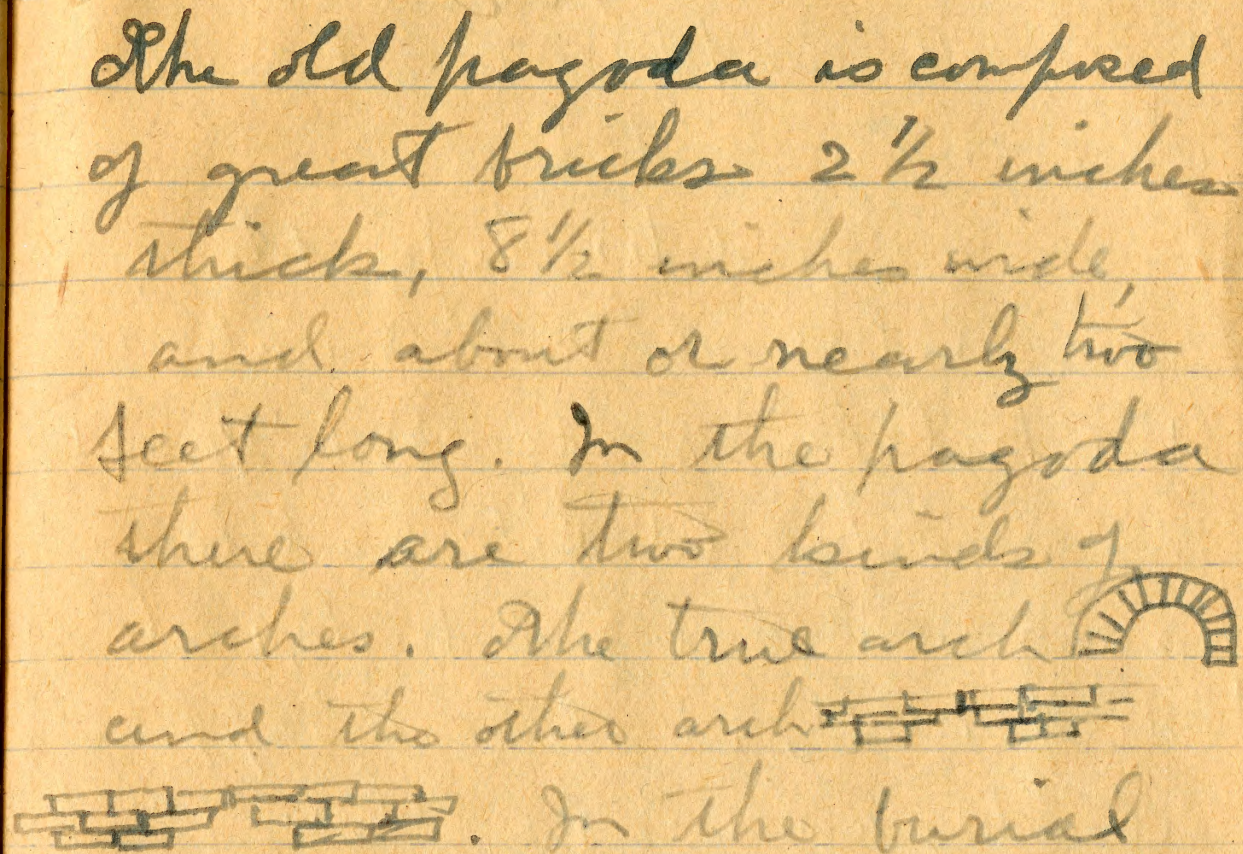 The old pagoda is composed
of great bricks 2 1/2 inches
thick, 8 1/2 inches wide,
and about or nearly two
feet long. In the pagoda
there are two kinds of
arches. The true arch
and the other arch
. In the burial